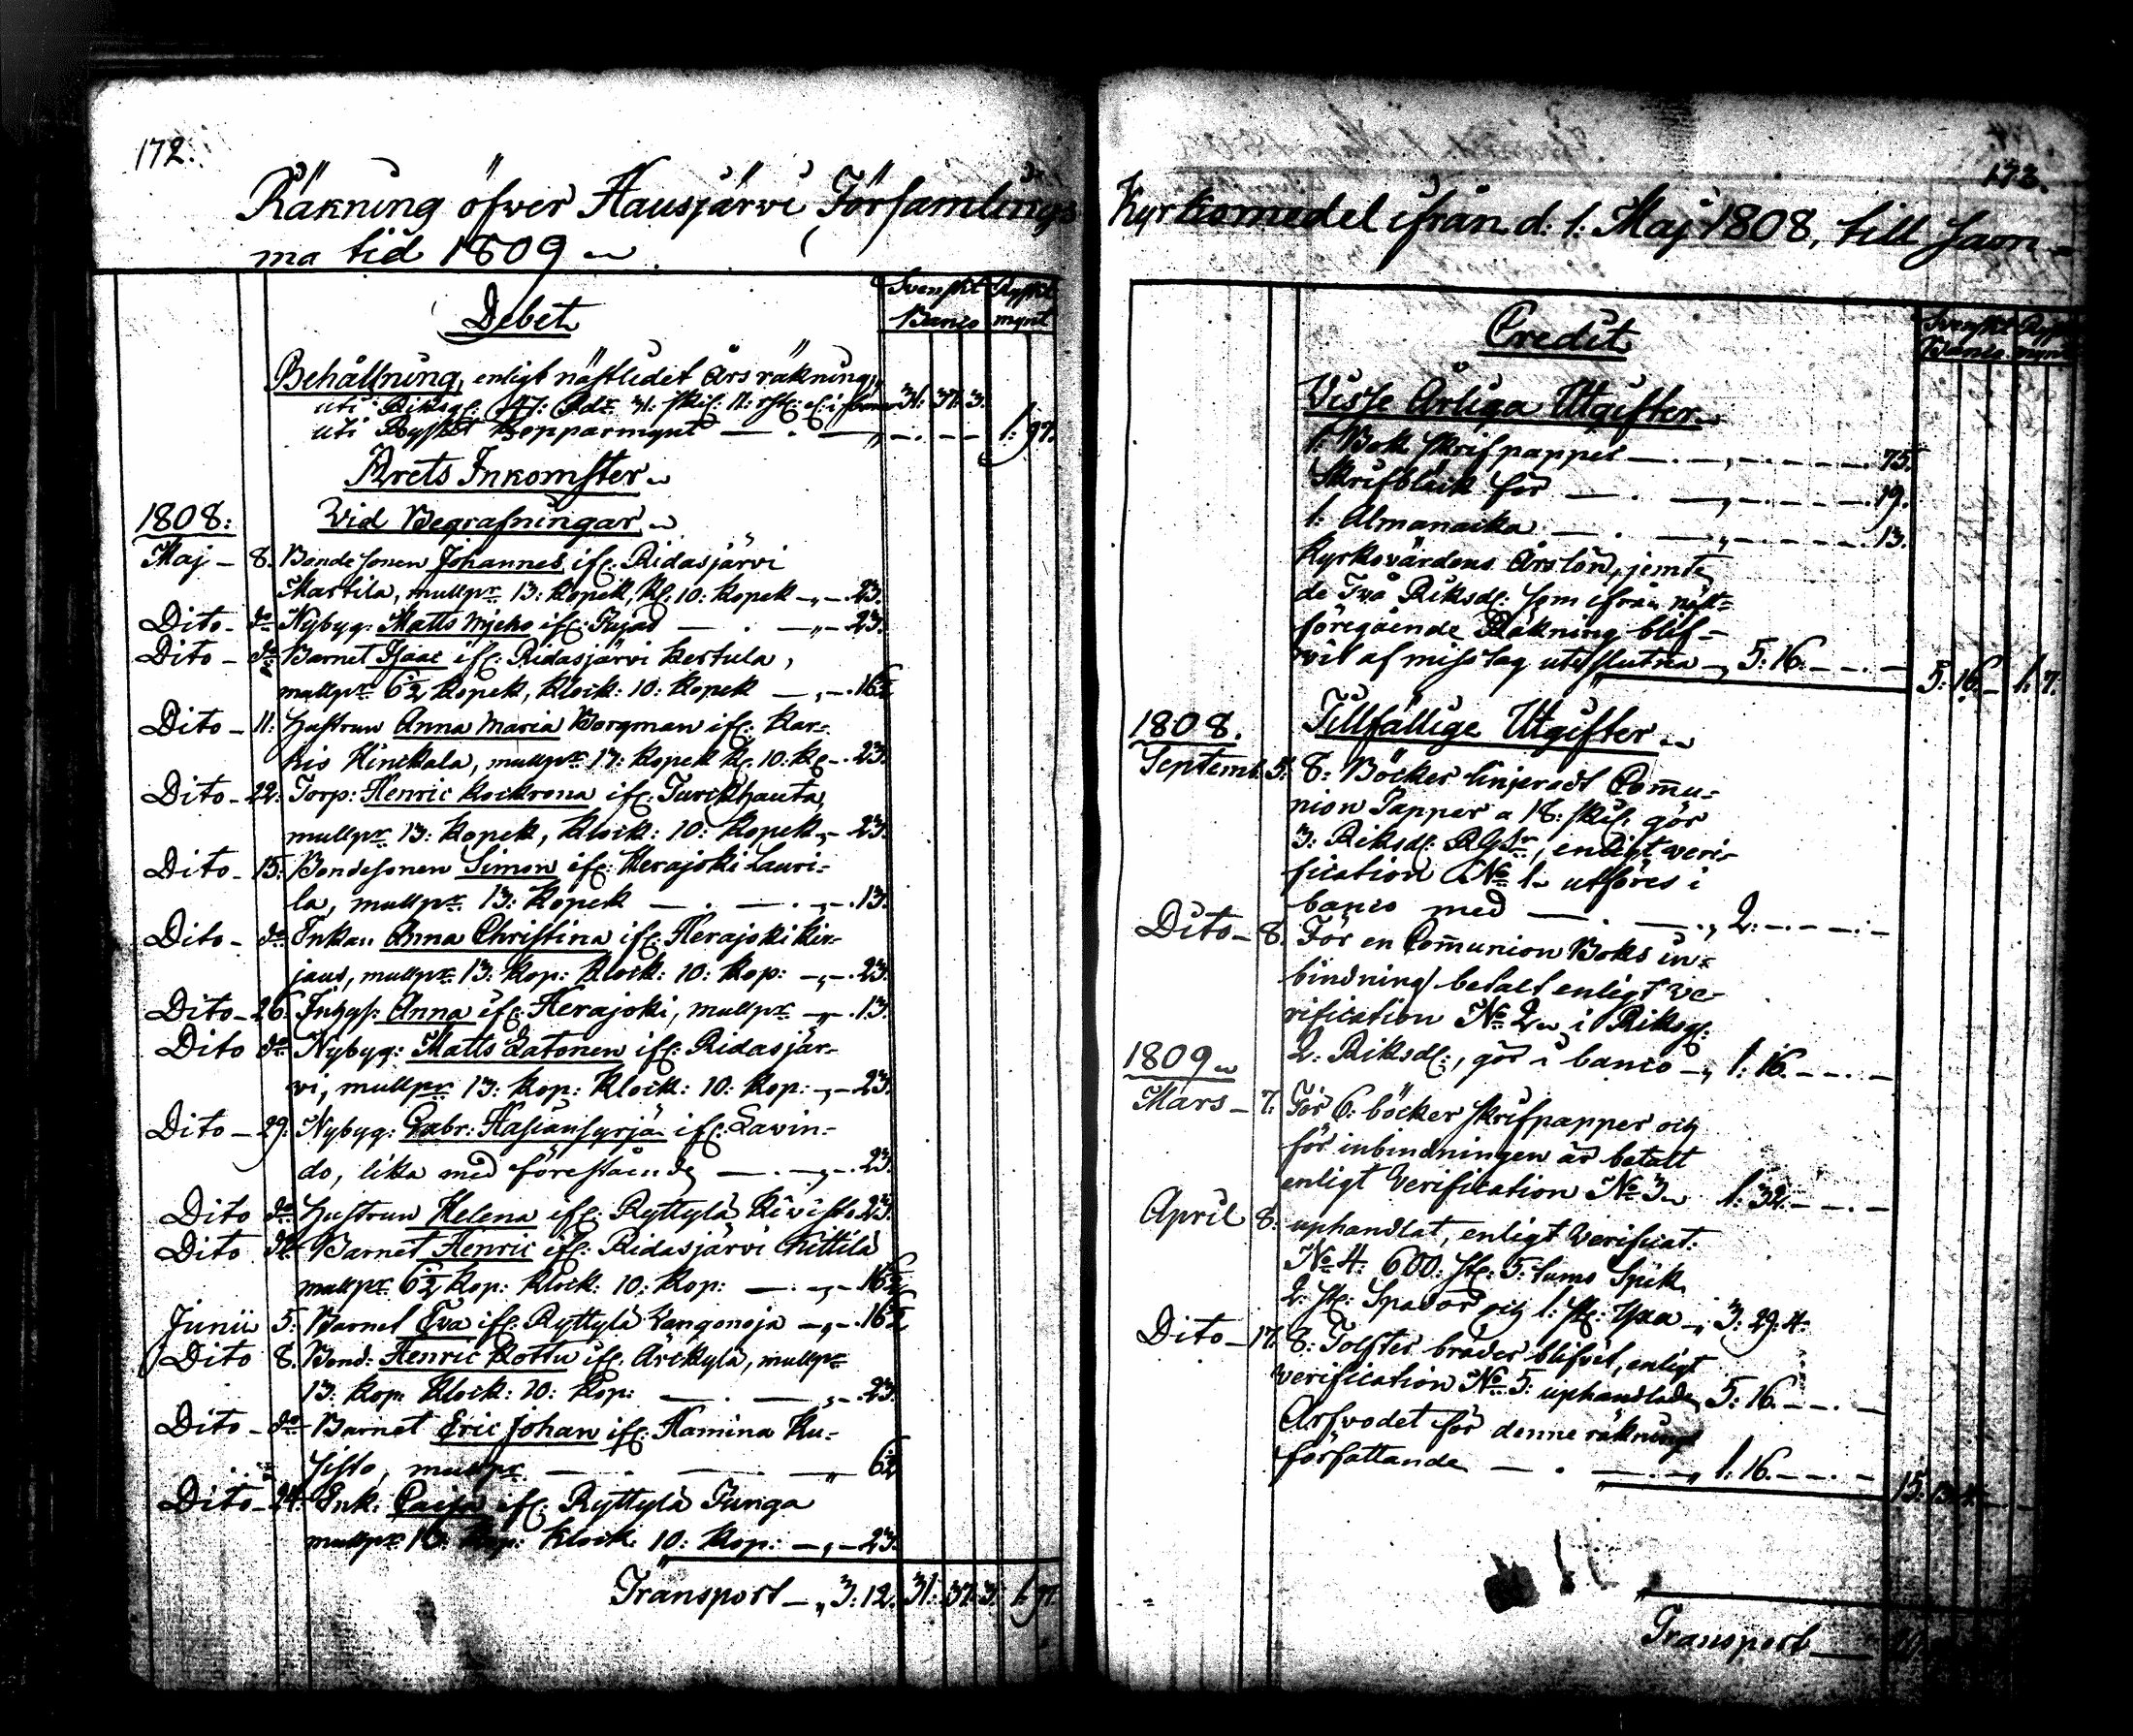 172.
Räkning öfver Hausjärvi Församlings
ma tid 1809
Debet
Svenskt Banco
Ryskt mynt
Behållning, enligt nästledet Års räkning,
uti Riksg: 47: Rdr 31: skil: 11: rst: 31. 37. 3.
uti Ryskt Kopparmynt 1: 97.
Årets Inkomster
1808:
Vid Begrafningar
Maj - 8. Bonde sonen Johannes if: Ridasjärvi
Martila, mullpr 13: kopek, kl: 10: kopek 23.
Dito - do Nybyg: Matts Mjeho if: Kujad 23.
Dito - do Barnet Isaac if: Ridasjärvi Kertula,
mullpr 6½ kopek, klock: 10: kopek 16½
Dito - 11: Hustrun Anna Maria Borgman if: Kar-
his Hinckala, mullpr 13: kopek kl: 10: k: 23.
Dito - 22: Torp: Henric Kockrona if: Turckhauta,
mullpr 13: kopek, klock: 10: kopek 23.
Dito - 15: Bondesonen Simon if: Herajoki Lauri-
la, mullpr 13: kopek 13.
Dito - do Enkan Anna Christina if: Herajoki Kir-
jaus, mullpr 13: kop: klock: 10: kop: 23.
Dito - 26. Inhys: Anna if: Herajoki, mullpr 13.
Dito do Nybyg: Matts Latonen if: Ridasjär-
vi, mullpr 13: kop: klock: 10: kop: 23.
Dito - 29: Nybyg: Gabr: Hasiansyrjä if: Lavin-
do, lika med föreståend 23.
Dito do Hustrun Helena if: Ryttylä Kivisto 23.
Dito do Barnet Henric if: Ridasjärvi Kittilä
mullpr 6½ kop: klock: 10: kop: 16½
Junii 5: Barnet Eva if: Ryttylä Vangonoja 16½
Dito 8. Bond: Henric Kottu if: Äickylä, mullpr
13: kop: klock: 10: kop: 23.
Dito - do Barnet Eric Johan if: Hamina Ku-
sisto, mullpr 6½
Dito - 24. Enk: Caisa if: Ryttylä Junga
mullpr 13: kop: klock 10: kop: 23.
Transport 3: 12. 31: 37. 3. 1: 97.
173.
Kyrkiomedel ifrån d: 1: Maj 1808, till sam-
Credit
Svenskt Banco
Visse Årliga Utgifter
1: Bok skrifpapper 75.
Skrifbläck för 19.
1: Almanacka 13.
Kyrkovärdens Årslön, jemte
de Två Riksd: som ifrån näst-
föregående Räkning blif-
vit af misstag uteslutna 5: 16. 5: 16. 1: 7.
1808.
Tillfällige Utgifter
Septemb. 5: 8: Böcker linjeradt Commu-
nion Papper a 18: skil: gör
3: Riksd: Rgdr, enligt veri-
fication No 1 utföres i
banco med 2.
Dito - 8. För en Communion Boks in-
bindning betalt enligt ve-
rification No 2 i Riksg:
2: Riksd:, gör i banco 1: 16.
1809
Mars - 7. För 6: böcker skrifpapper och
för inbindningen är betalt
enligt Verification No 3 1: 32.
April 8: uphandlat, enligt Verificat:
No 4: 600: st: 5: tums Spik
2: st: Spador och 1: st: Yxa 3: 29: 4.
Dito - 17. 8: Tolfter bräder blifvet, enligt
verification No 5: uphandlade 5: 16.
Arfvodet för denne räknings
författande 1: 16. 15: 13. 4.
Transport